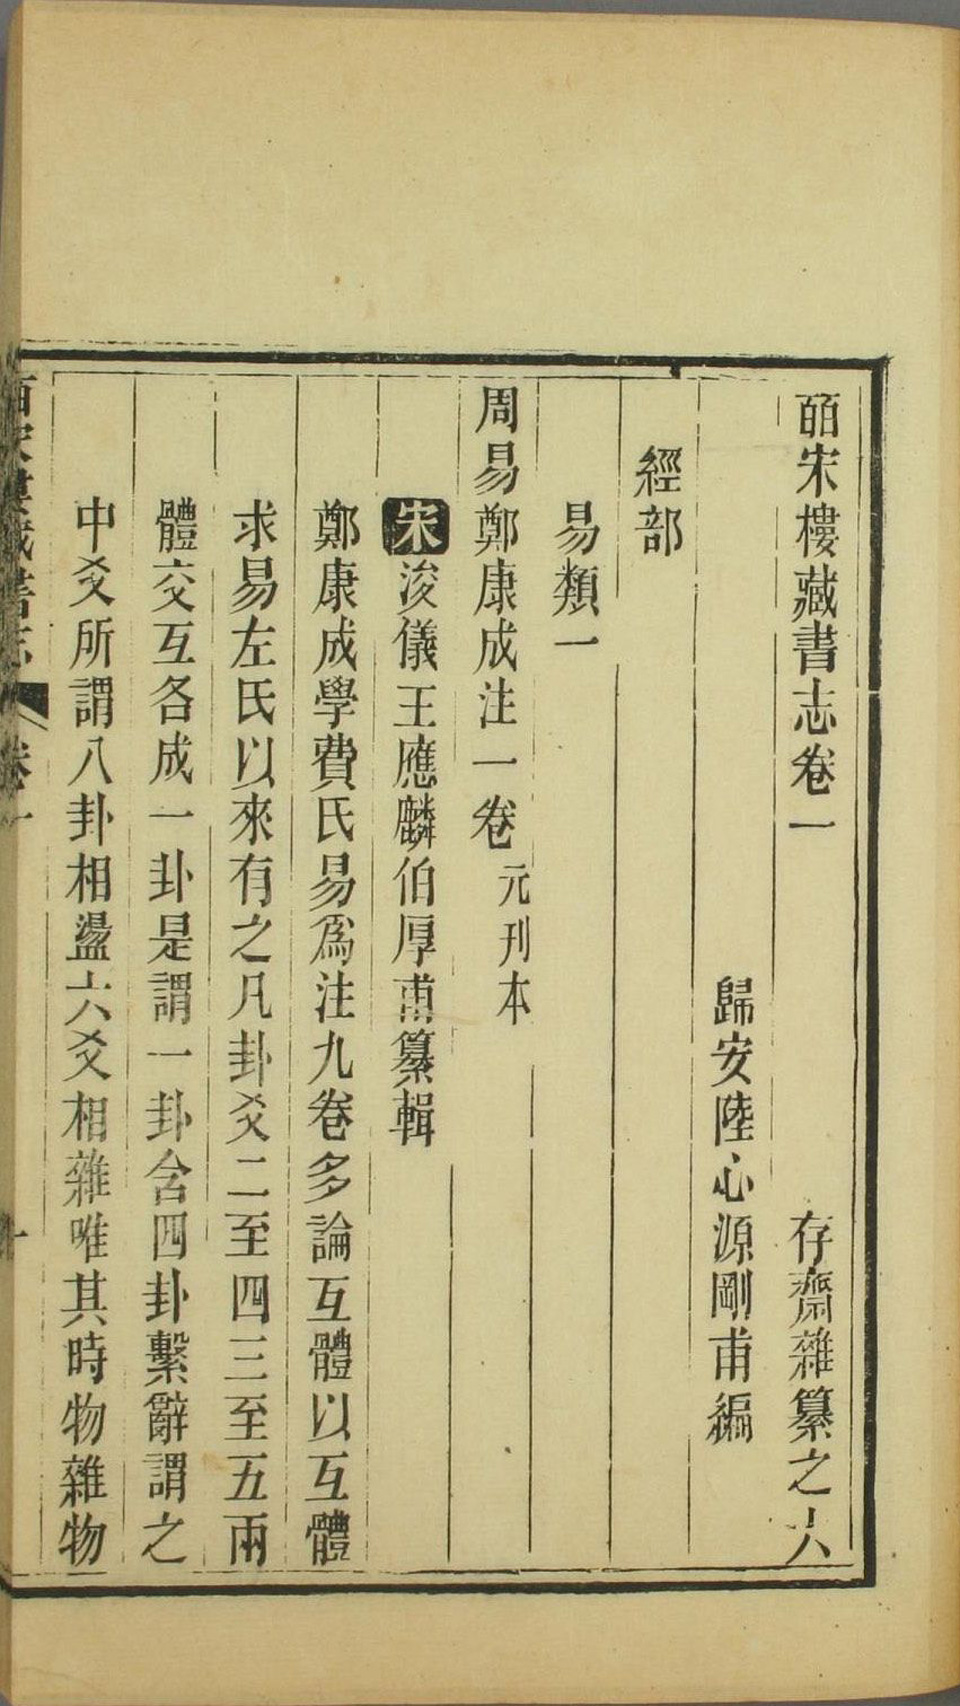 皕宋樓藏書志卷一　存齋雜纂之六
歸安陸心源剛甫編
經部
易類一
周易鄭康成注一卷元刊本
宋浚儀王應麟伯厚甫纂輯
鄭康成學費氏易爲注九卷多論互體以互體
求易左氏以來有之凡卦爻二至四三至五兩
體交互各成一卦是謂一卦含四卦繫辭謂之
中爻所謂八卦相盪六爻相雜唯其時物雜物
皕宋樓藏書志　卷一　一